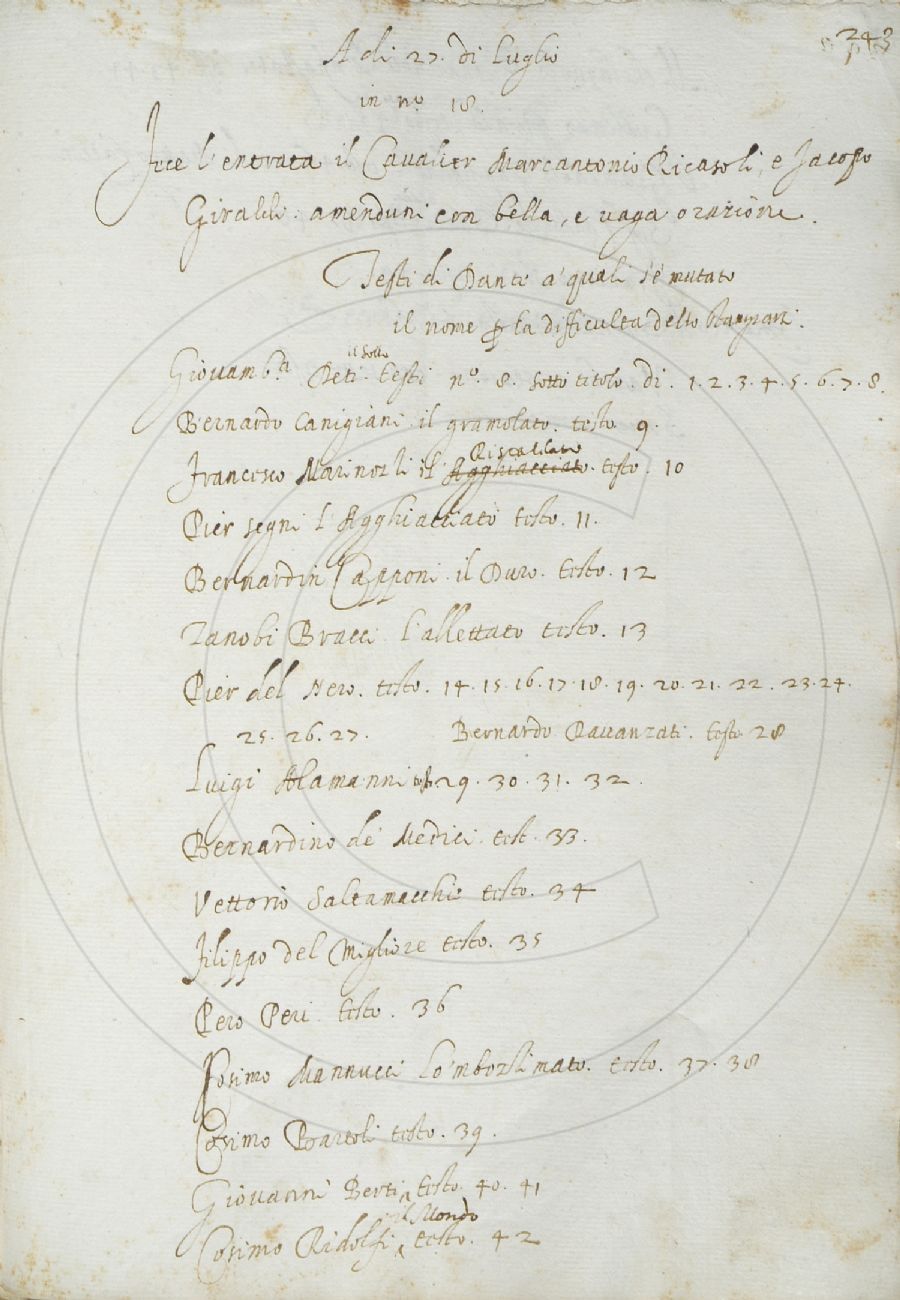 243
A di 27. di Luglio
in nº 18.
Fece l'entrata il Cavalier Marcantonio Ricasoli, e Jacopo
Giraldi. amenduni con bella, e vaga orazione.
Testi di Dante a' quali s'è mutato
il nome ꝑ la difficultà dello
Giovamb.ta Deti il Sollo testi nº. 8. sotto titolo. di. 1. 2. 3. 4. 5. 6. 7. 8.
Bernardo Canigiani il gramolato. testo 9.
Francesco Marinozzi il Agghiacciato Riscaldato. testo. 10
Pier segni l'Agghiacciato testo. 11.
Bernardin Capponi. il Duro. testo. 12
Zanobi Bracci l'allettato testo. 13
Pier del Nero. testo. 14. 15. 16. 17. 18. 19. 20. 21. 22. 23. 24.
25. 26. 27. Bernardo Davanzati. testo 28
Luigi Alamanni testo 29. 30. 31. 32.
Bernardino de' Medici. test. 33.
Vettorio Saltamacchie testo. 34
Filippo del Migliore testo. 35
Pero Peri testo. 36
Cosimo Mannucci Lo'mbozzimato. testo. 37. 38
Cosimo Bartoli testo. 39.
Giovanni Berti testo. 40. 41
Cosimo Ridolfi il Mondo testo. 42